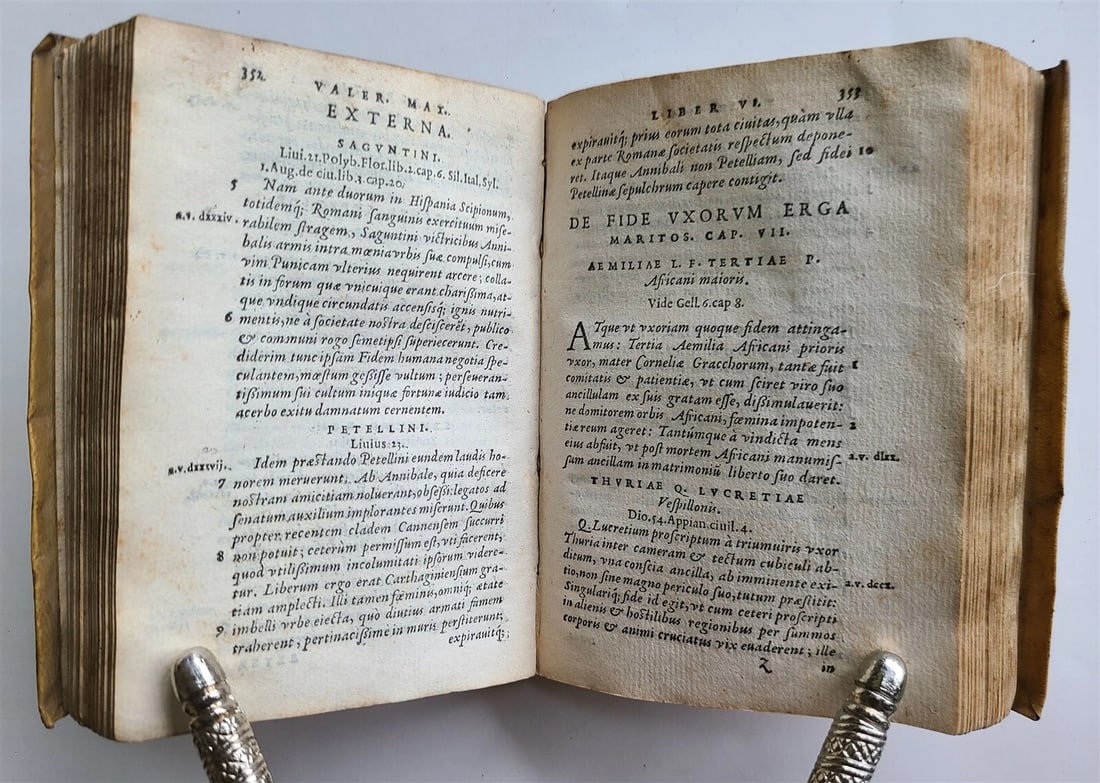 352
VALER. MAX.
EXTERNA.
SAGVNTINI.
Liui.21.Polyb.Flor.lib.2.cap.6. Sil.Ital.Syl.
1.Aug.de ciu.lib.3.cap.20.
5 Nam ante duorum in Hispania Scipionum,
a.v. dxxxiv. totidemq́; Romani sanguinis exercituum mise-
rabilem stragem, Saguntini victricibus Anni-
balis armis intra mœnia vrbis suæ compulsi, cum
vim Punicam vlterius nequirent arcere; colla-
tis in forum quæ vnicuique erant charissima, at-
que vndique circundatis accensisq́; ignis nutri-
6 mentis, ne à societate nostra desciscerēt, publico
& communi rogo semetipsi superiecerunt. Cre-
diderim tunc ipsam Fidem humana negotia spe-
culantem, mœstum gessisse vultum; perseueran-
tissimum sui cultum iniquæ fortunæ iudicio tam
acerbo exitu damnatum cernentem.
PETELLINI.
Liuius 23.
a.v. dxxxvij. Idem præstando Petellini eundem laudis ho-
7 norem meruerunt. Ab Annibale, quia deficere
nostram amicitiam noluerant, obsessi: legatos ad
senatum auxilium implorantes miserunt. Quibus
propter recentem cladem Cannensem succurri
8 non potuit; ceterùm permissum est, vti facerent,
quod vtilissimum incolumitati ipsorum videre-
tur. Liberum ergo erat Carthaginensium gra-
tiam amplecti. Illi tamen fœminis, omniq́; ætate
imbelli vrbe eiecta, quò diutius armati famem
9 traherent, pertinacissime in muris perstiterunt,
expirauitq́;
LIBER VI. 353
expirauitq́; prius eorum tota ciuitas, quàm vlla
ex parte Romanæ societatis respectum depone-
ret. Itaque Annibali non Petelliam, sed fidei 10
Petellinæ sepulchrum capere contigit.
DE FIDE VXORVM ERGA
MARITOS. CAP. VII.
AEMILIAE L. F. TERTIAE P.
Africani maioris.
Vide Gell. 6.cap 8.
ATque vt vxoriam quoque fidem attinga-
mus: Tertia Aemilia Africani prioris
vxor, mater Corneliæ Gracchorum, tantæ fuit 1
comitatis & patientiæ, vt cum sciret viro suo
ancillulam ex suis gratam esse, dissimulauerit:
ne domitorem orbis Africani, fœmina impoten- 2
tiæ reum ageret: Tantúmque à vindicta mens
eius abfuit, vt post mortem Africani manumis- a.v. dlxx.
sam ancillam in matrimoniũ liberto suo daret.
THVRIAE Q. LVCRETIAE
Vespillonis.
Dio.54.Appian.ciuil.4.
Q. Lucretium proscriptum à triumuiris vxor
Thuria inter cameram & tectum cubiculi ab-
ditum, vna conscia ancilla, ab imminente exi- a.v. dccx.
tio, non sine magno periculo suo, tutum præstitit:
Singulariq́; fide id egit, vt cum ceteri proscripti
in alienis & hostilibus regionibus per summos
corporis & animi cruciatus vix euaderent; ille
Z in